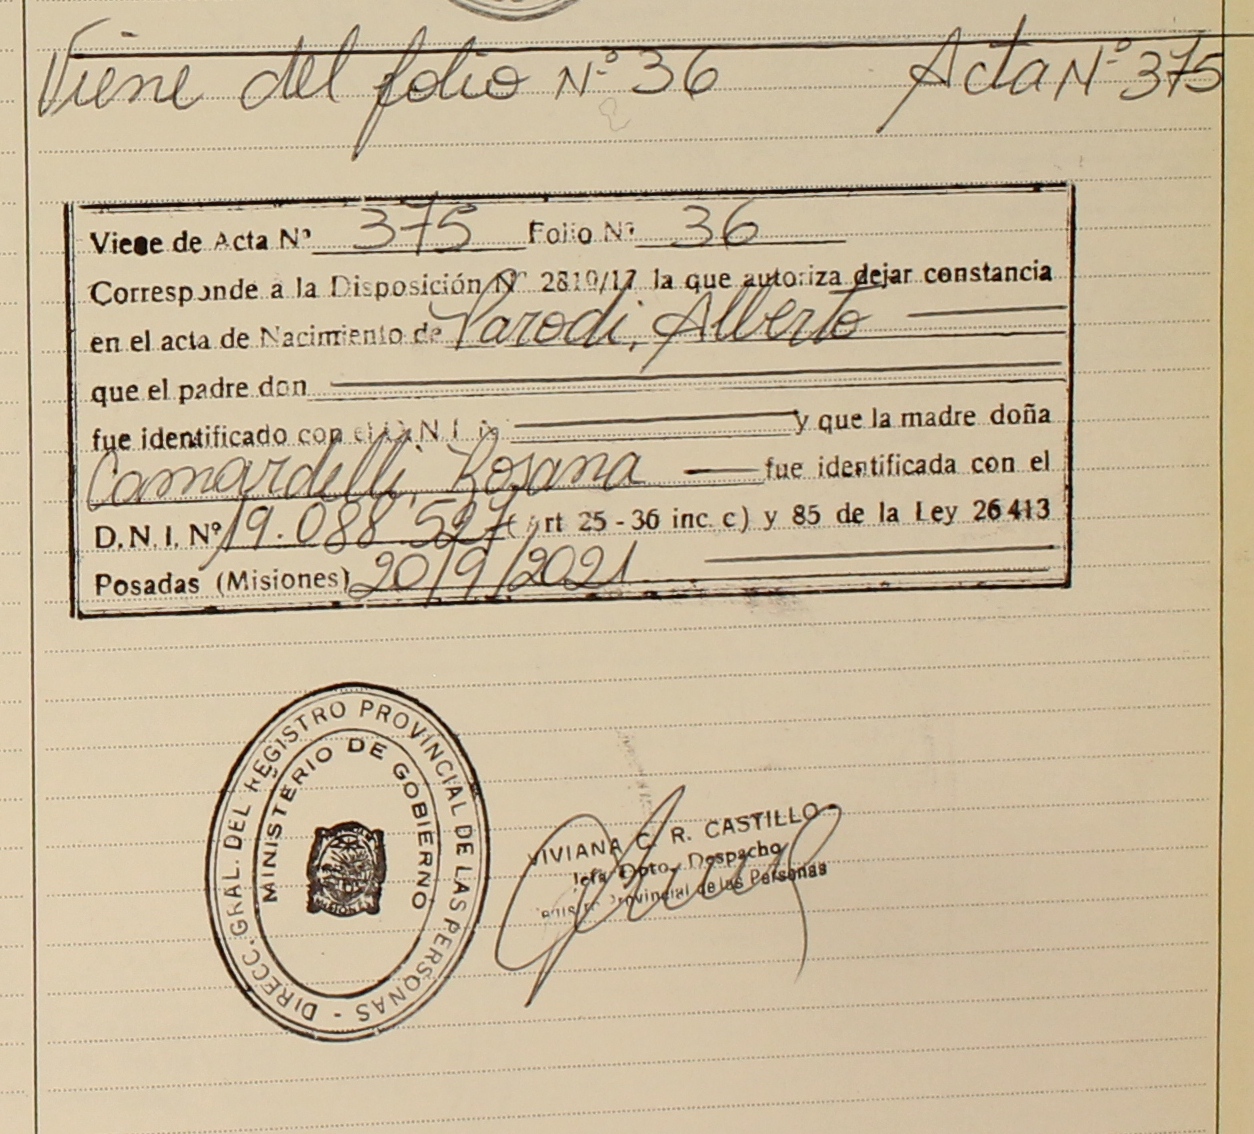 Viene del folio Nº 36 Acta Nº 375
Viene de Acta Nº 375 Folio Nº 36
Corresponde a la Disposición Nº 2810/17 la que autoriza dejar constancia
en el acta de Nacimiento de Parodi, Alberto
que el padre don
fue identificado con el D.N.I. Nº y que la madre doña
Camardelli, Rosana fue identificada con el
D.N.I. Nº 19.088.527 (Art 25 - 36 inc. c) y 85 de la Ley 26413
Posadas (Misiones) 20/9/2021
DIRECC. GRAL. DEL REGISTRO PROVINCIAL DE LAS PERSONAS -
MINISTERIO DE GOBIERNO
MISIONES
VIVIANA C. R. CASTILLO
Jefa Dpto. Despacho
Registro Provincial de las Personas